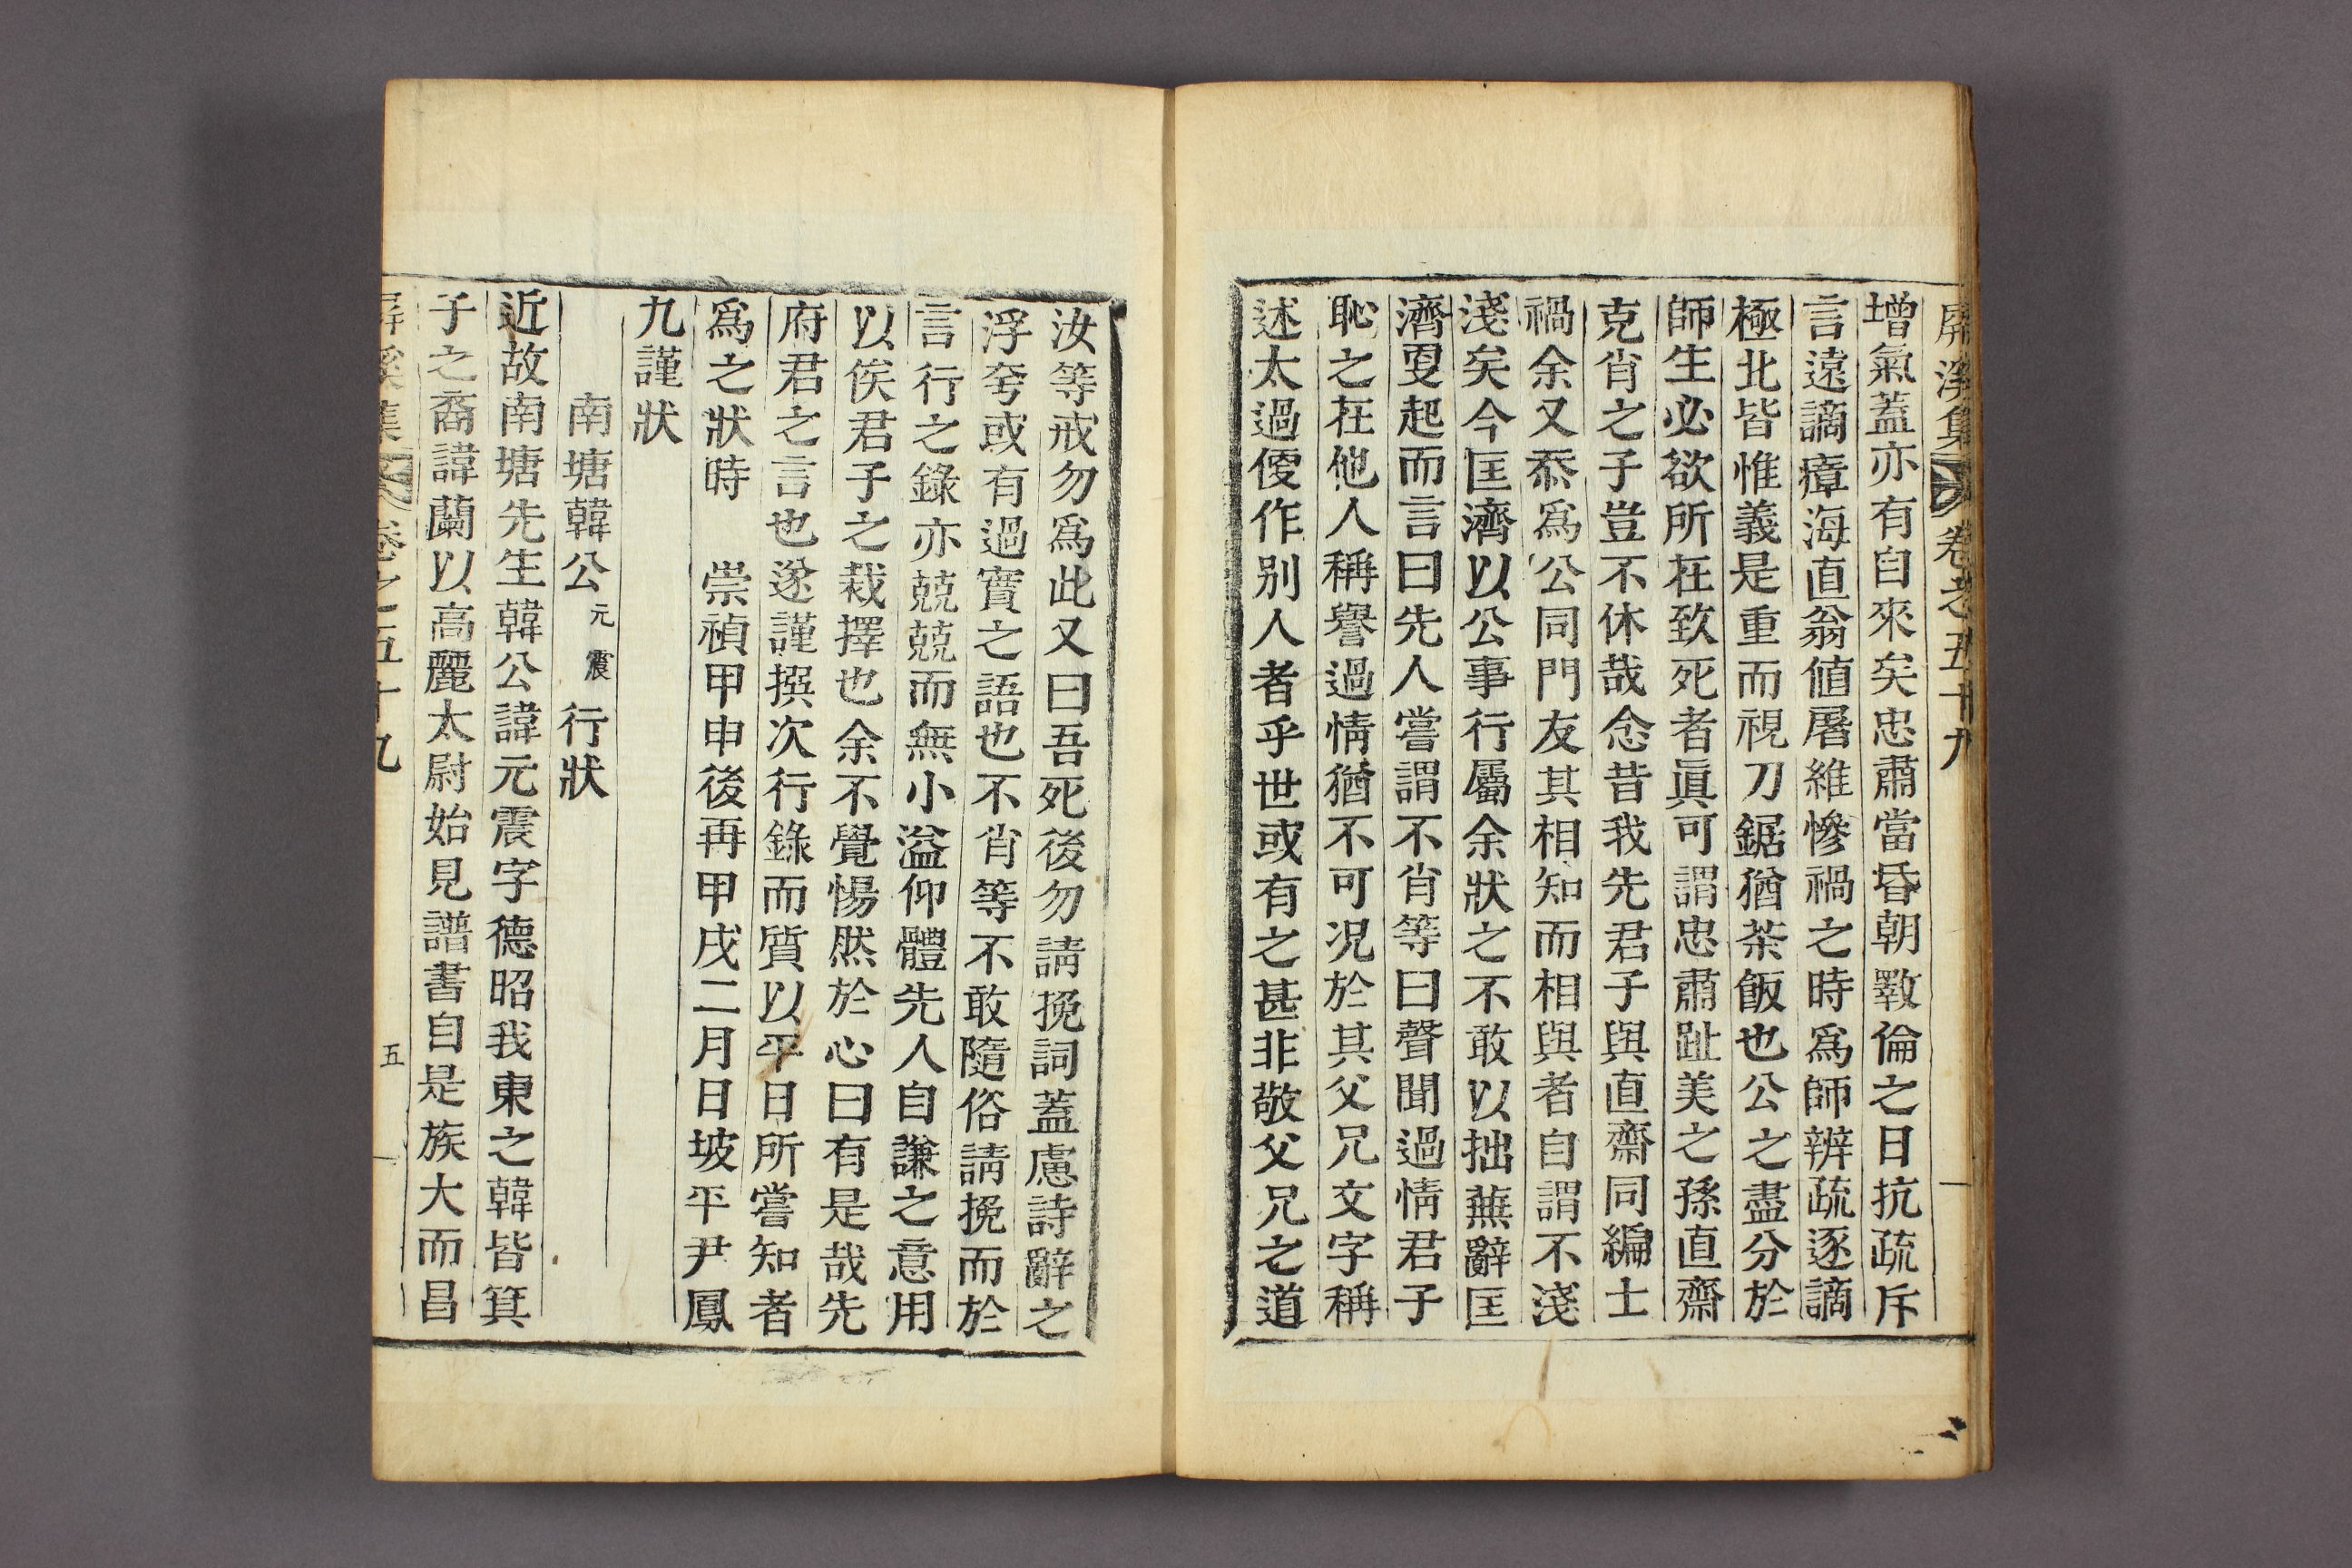 屛溪集 卷之五十九
增氣蓋亦有自來矣忠肅當昏朝斁倫之日抗疏斥
言遠謫瘴海直翁値屠維慘禍之時爲師辨疏逐謫
極北皆惟義是重而視刀鋸猶茶飯也公之盡分於
師生必欲所在致死者眞可謂忠肅趾美之孫直齋
克肖之子豈不休哉念昔我先君子與直齋同編士
禍余又忝爲公同門友其相知而相與者自謂不淺
淺矣今匡濟以公事行屬余狀之不敢以拙蕪辭匡
濟更起而言曰先人嘗謂不肖等曰聲聞過情君子
恥之在他人稱譽過情猶不可况於其父兄文字稱
述太過便作別人者乎世或有之甚非敬父兄之道
汝等戒勿爲此又曰吾死後勿請挽詞蓋慮詩辭之
浮夸或有過實之語也不肖等不敢隨俗請挽而於
言行之錄亦兢兢而無小溢仰體先人自謙之意用
以俟君子之裁擇也余不覺愓然於心曰有是哉先
府君之言也遂謹撰次行錄而質以平日所嘗知者
爲之狀時 崇禎甲申後再甲戌二月日坡平尹鳳
九謹狀
南塘韓公元震行狀
近故南塘先生韓公諱元震字德昭我東之韓皆箕
子之裔諱蘭以高麗太尉始見譜書自是族大而昌
屛溪集 卷之五十九 五